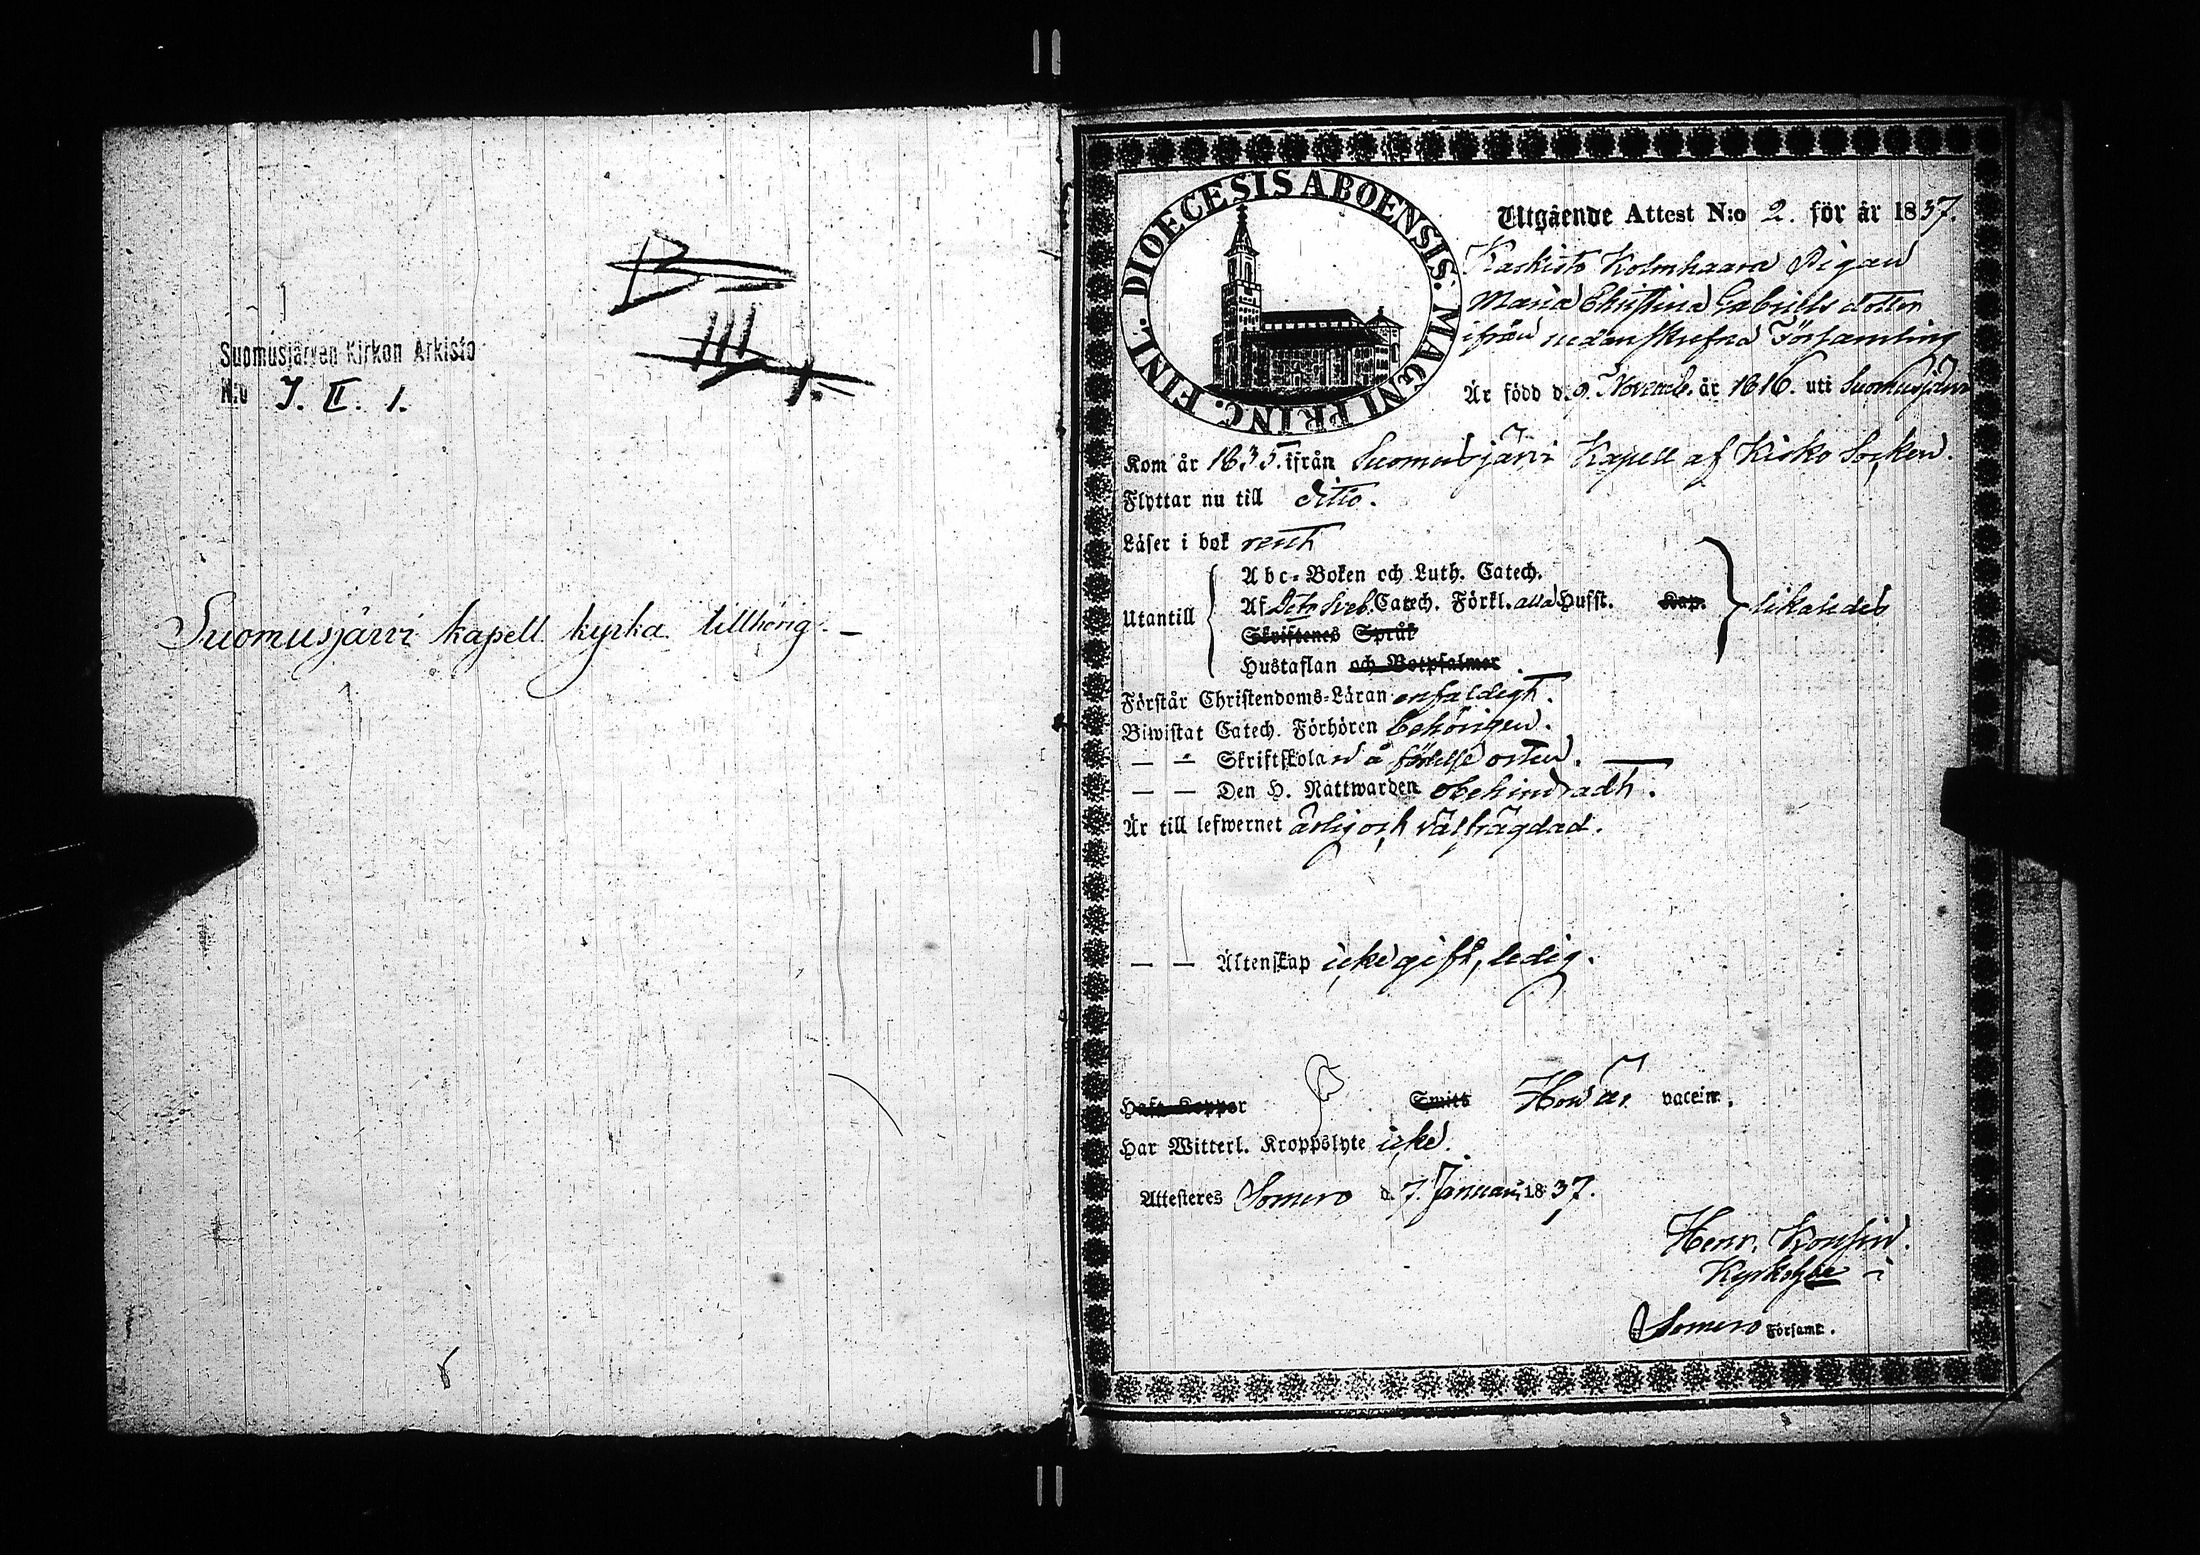 B
III 1.
Suomusjärven Kirkon Arkisto
N:o I. II. 1.
Suomusjärvi kapell kyrka tillhörig. —
DIOECESIS ABOENSIS. MAGNI PRINC. FINL.
Utgående Attest N:o 2. för år 1837.
Kaskisto Kolmhaara Pigan
Maria Christina Gabriels dotter
ifrån nedanskrefna Församling
Är född d. 9. Novemb. år 1816. uti Suomusjärvi
Kom år 1835. ifrån Suomusjärvi Kapell af Kisko Socken.
Flyttar nu till ditto.
Läser i bok rent
Utantill
Abc-Boken och Luth. Catech.
Af Dito Sveb. Catech. Förkl. alla Hufst. Kap. likaledes
Skriftenes Språk
Hustaflan och Botpsalmer
Förstår Christendoms-Läran enfaldigt.
Biwistat Catech. Förhören behörigen.
— — Skriftskolan å födelse orten.
— — Den H. Nattwarden obehindradt.
Är till lefwernet ärlig och välfrägdad.
— — Äktenskap icke gift, ledig.
Haft Koppor Smitt vaccin.
Har Witterl. Kroppslyte icke.
Attesteres Somero d. 7. Januari 1837.
Henr.
i
Somero Församl.